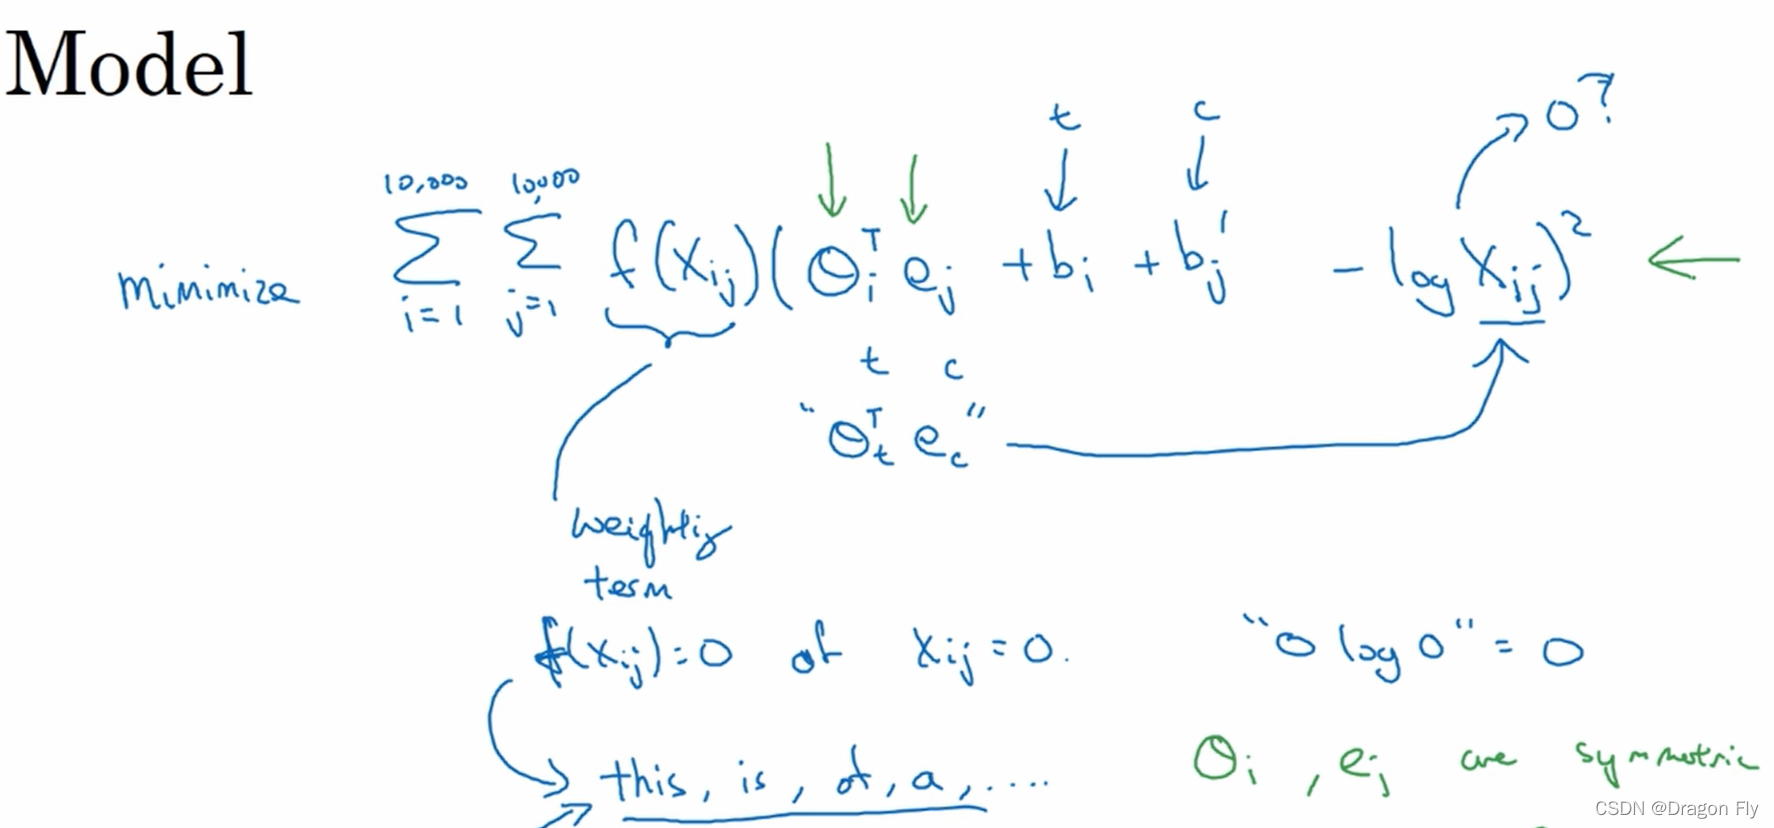 Model
t c 0?
10,000 10,000
minimize Σ Σ f(Xij)(Θiᵀ ej + bi + bj' - log Xij)²
i=1 j=1
t c
"Θtᵀ ec"
weighting
term
f(Xij)=0 if Xij=0. "0 log 0" = 0
this, is, of, a, ....
Θi, ej are symmetric
CSDN @Dragon Fly